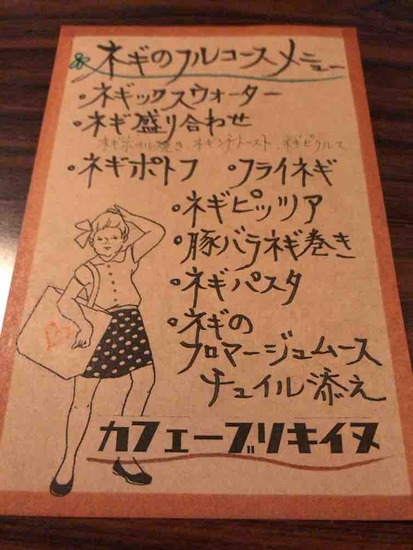 ネギのフルコースメニュー
・ネギックスウォーター
・ネギ盛り合わせ
ネギホイル焼き、ネギジャトースト、ネギピクルス
・ネギポトフ ・フライネギ
・ネギピッツア
・豚バラネギ巻き
・ネギパスタ
・ネギの
フロマージュムース
チュイル添え
カフェーブリキイヌ